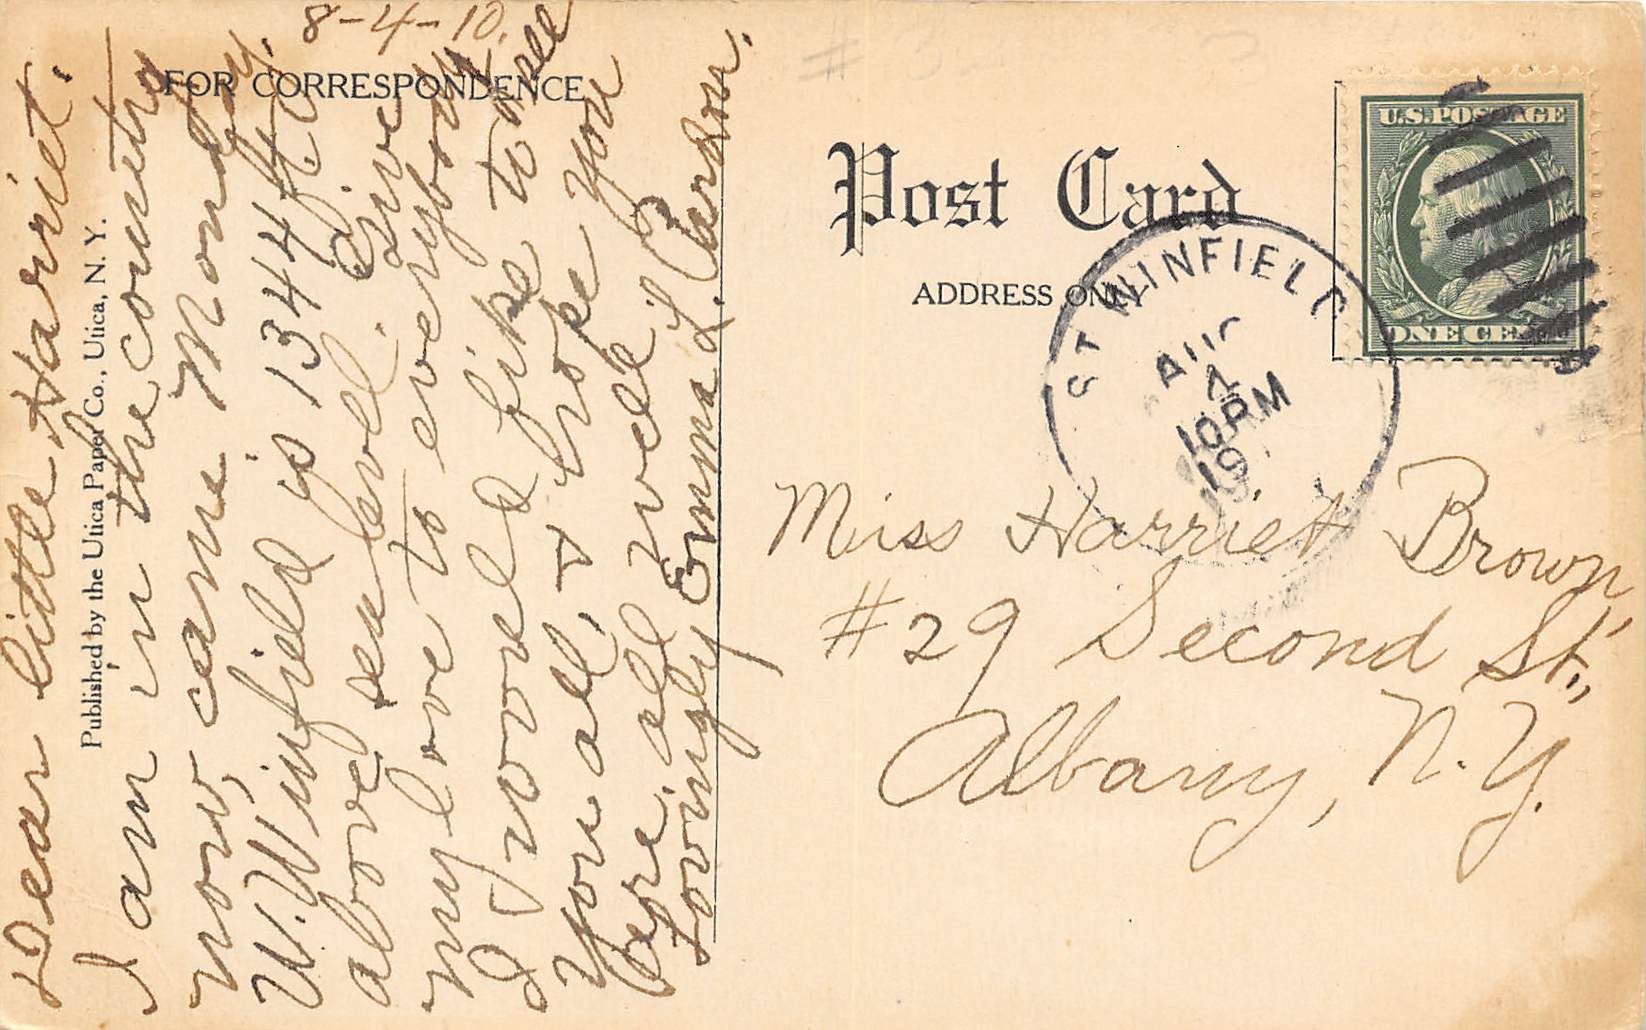 8-4-10.
FOR CORRESPONDENCE
Dear little Harriet.
I am in the country
now, came Monday.
W. Winfield is 1344 ft.
above sea level. Give
my love to everybody
I would like to see
you all, & hope you
are all well
Lovingly Emma L.
Published by the Utica Paper Co., Utica, N. Y.
Post Card
ADDRESS ONLY
U.S. POSTAGE
ONE CENT
ST WINFIELD
AUG
4
10PM
19
Miss Harriet Brown,
#29 Second St.,
Albany, N.Y.